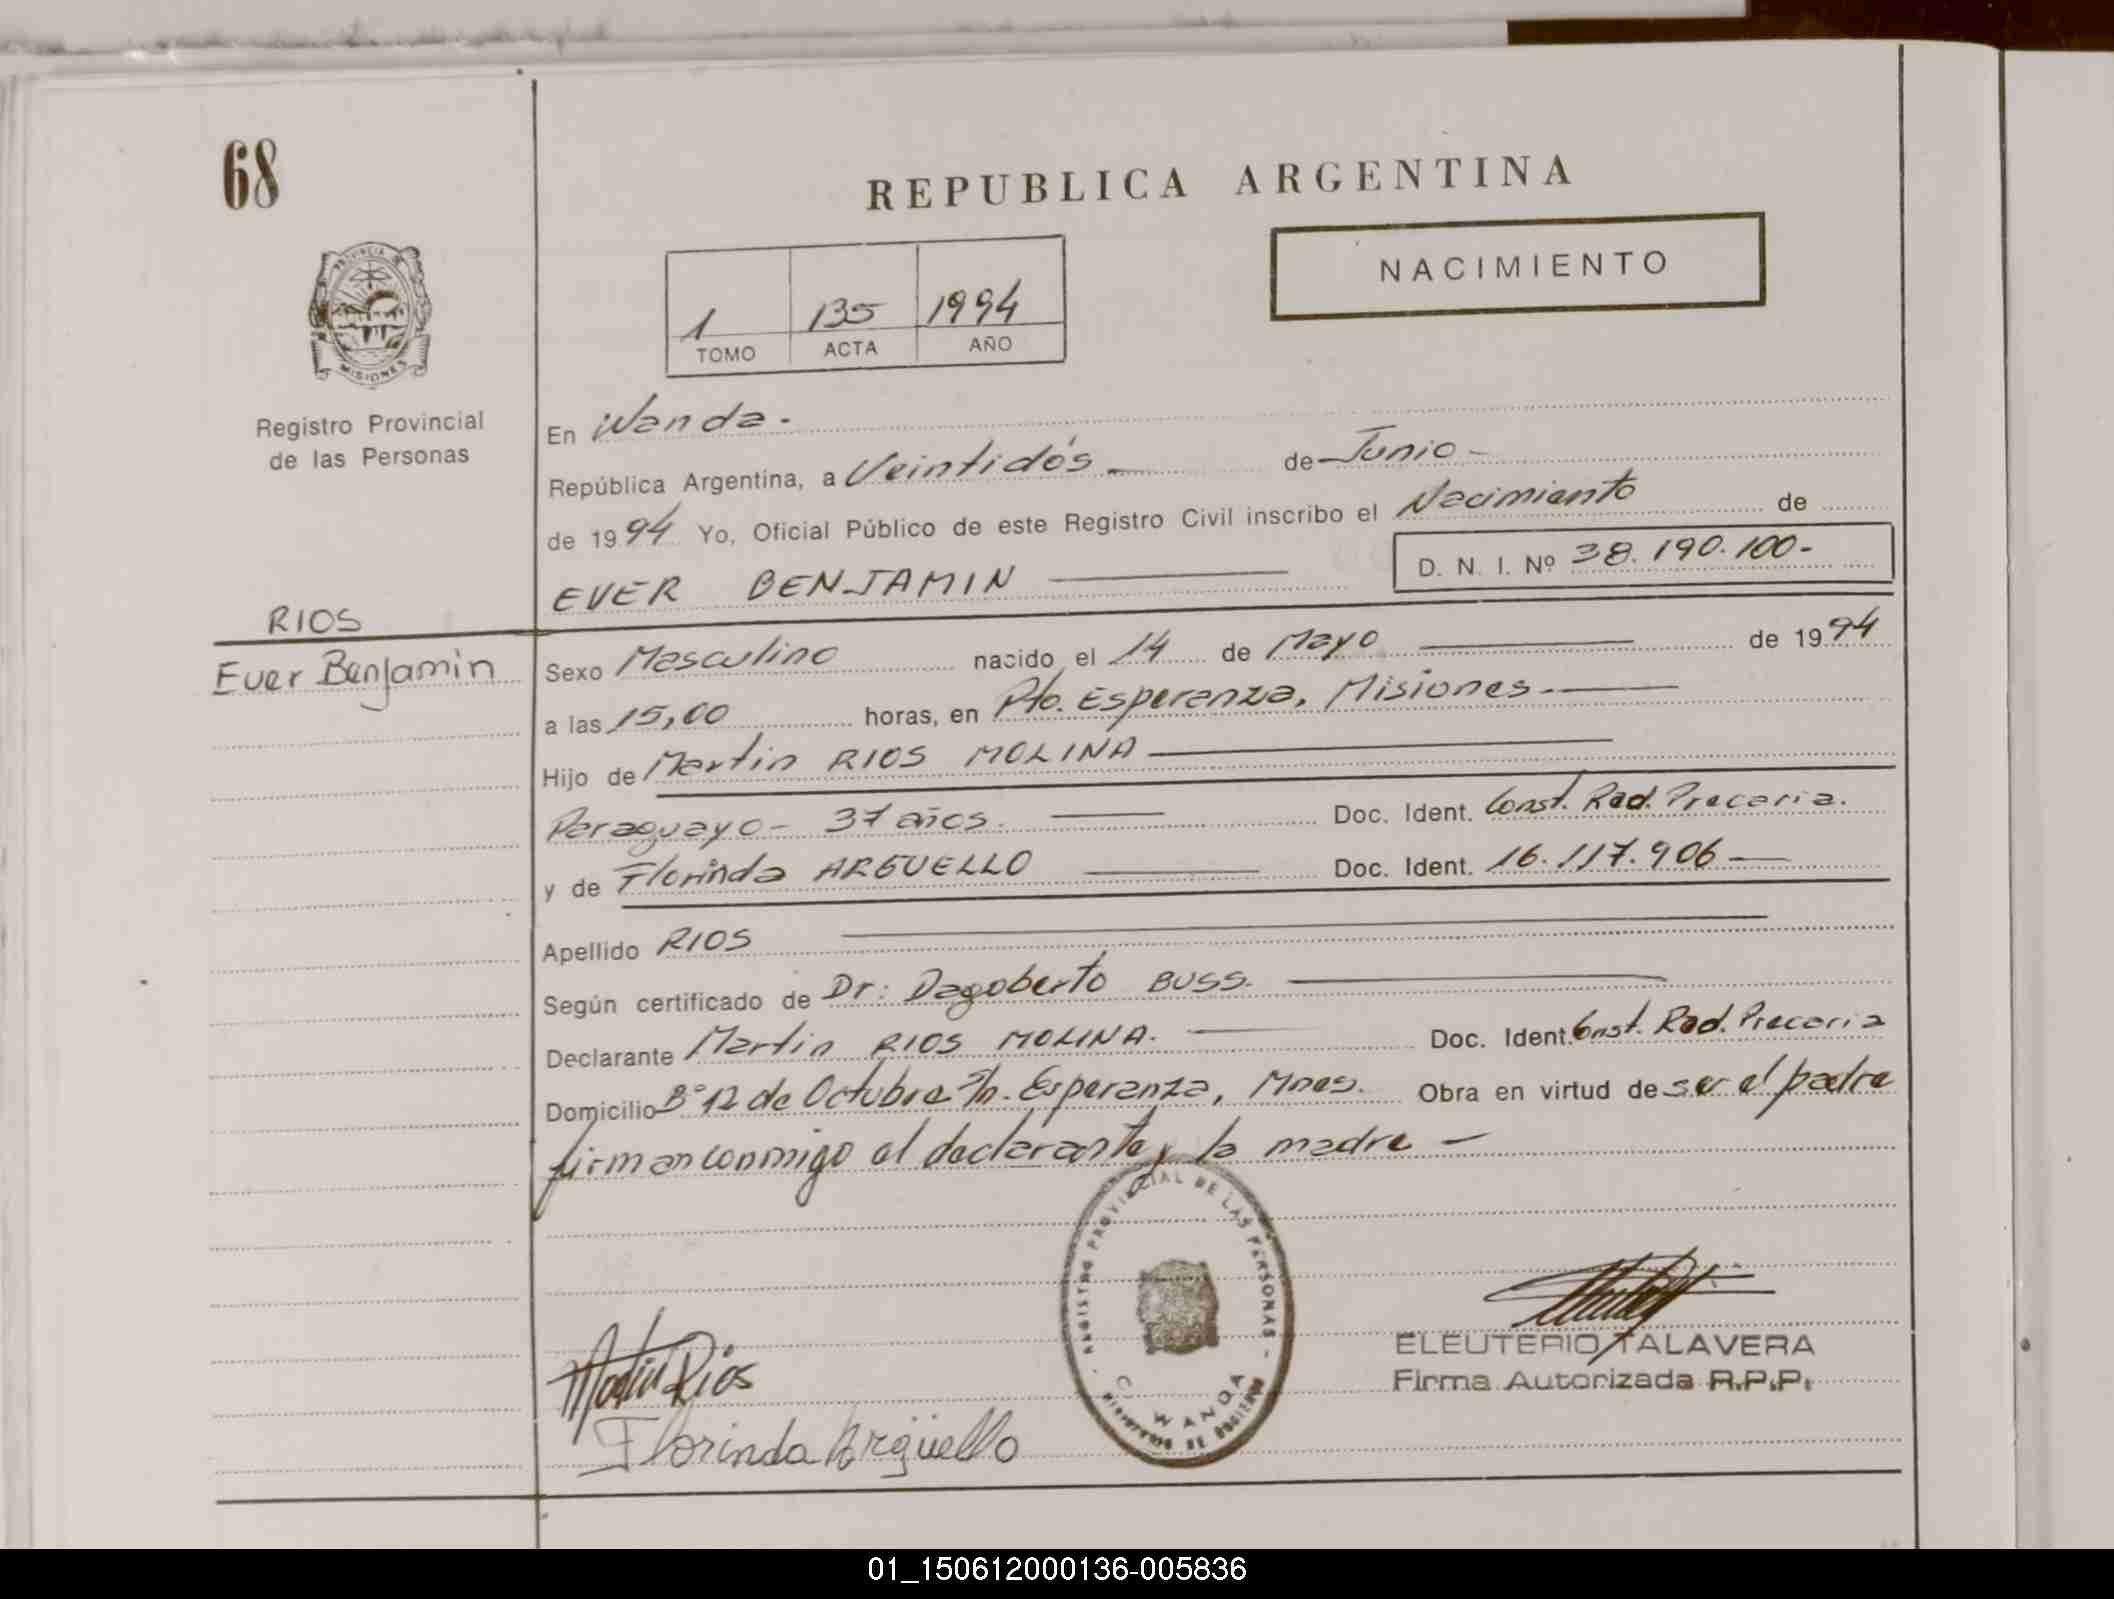 68
REPUBLICA ARGENTINA
NACIMIENTO
PROVINCIA DE
MISIONES
1 135 1994
TOMO ACTA AÑO
Registro Provincial
de las Personas
En Wanda.
República Argentina, a Veintidós de Junio
de 1994 Yo, Oficial Público de este Registro Civil inscribo el Nacimiento de
D. N. I. Nº 38.190.100-
EVER BENJAMIN
RIOS
Ever Benjamin
Sexo Masculino nacido el 14 de Mayo de 1994
a las 15,00 horas, en Pto. Esperanza, Misiones.
Hijo de Martin RIOS MOLINA
Paraguayo - 37 años. Doc. Ident. Const. Rad. Precaria.
y de Florinda ARGUELLO Doc. Ident. 16.117.906
Apellido RIOS
Según certificado de Dr: Dagoberto BUSS.
Declarante Martin RIOS MOLINA. Doc. Ident. Const. Rad. Precaria
Domicilio Bº 12 de Octubre S/n. Esperanza, Mnes. Obra en virtud de ser el padre
firman conmigo el declarante y la madre -
REGISTRO PROVINCIAL DE LAS PERSONAS
WANDA
ELEUTERIO TALAVERA
Firma Autorizada R.P.P.
Martin Rios
Florinda Argüello
01_150612000136-005836